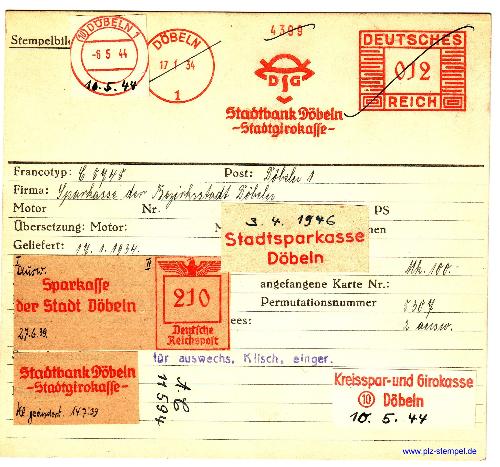 Stempelbild
10 DÖBELN 1
-6 5 44
10.5.44
DÖBELN
17 1 34
1
4399
DSG
Stadtbank Döbeln
-Stadtgirokasse-
DEUTSCHES
012
REICH
Francotyp: C
Post: Döbeln 1
Firma: Sparkasse der Bezirksstadt Döbeln
Motor Nr. PS
Übersetzung: Motor:
Geliefert: 17.1.1934.
3. 4. 1946
Stadtsparkasse
Döbeln
Mk. 100.-
angefangene Karte Nr.:
Permutationsnummer
I II
Sparkasse
der Stadt Döbeln
27.6.39.
210
Deutsche
Reichspost
für auswechs. Klisch. einger.
Stadtbank Döbeln
-Stadtgirokasse-
geändert. 14.7.39
11594
Kreisspar-und Girokasse
10 Döbeln
10. 5. 44
www.plz-stempel.de